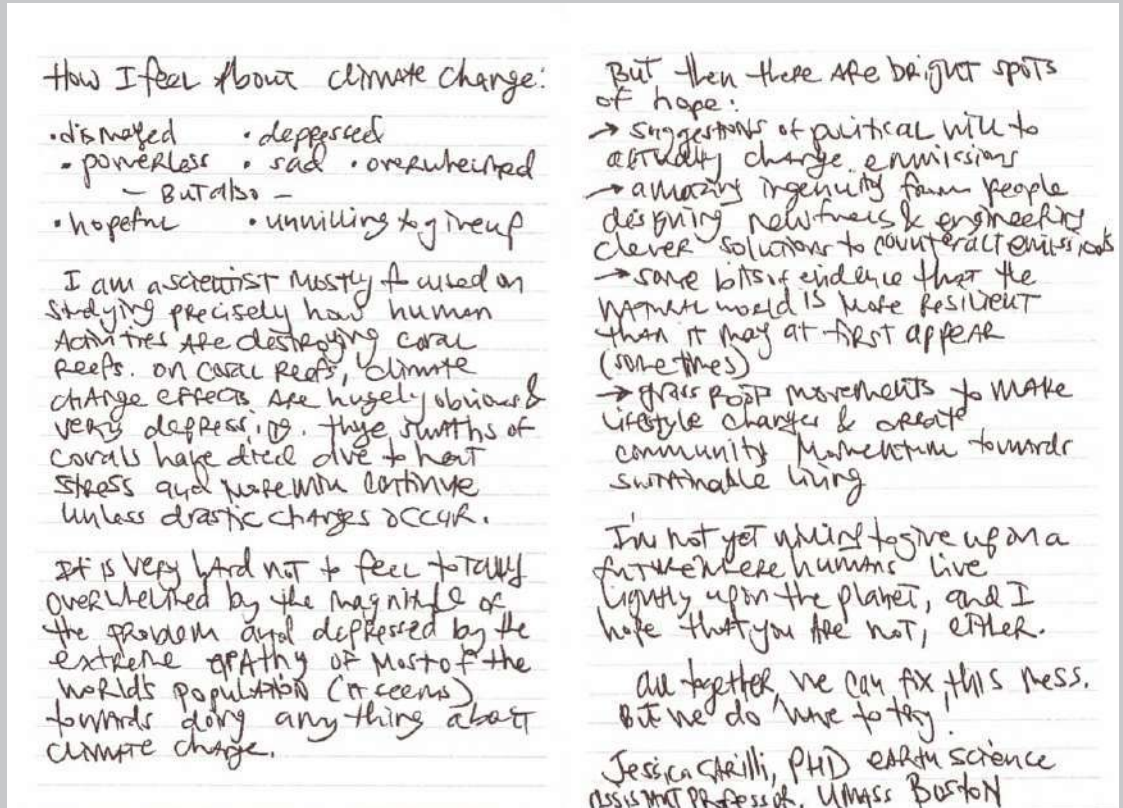 How I feel About climate change:
• dismayed • depressed
• powerless • sad • overwhelmed
– But also –
• hopeful • unwilling to give up
I am a scientist mostly focused on
studying precisely how human
Activities are destroying coral
Reefs. On coral Reefs, climate
change effects are hugely obvious &
very depressing. Huge swaths of
corals have died due to heat
stress and more will continue
unless drastic changes occur.
It is very hard not to feel totally
overwhelmed by the magnitude of
the problem and depressed by the
extreme apathy of most of the
world's population (it seems)
towards doing anything about
climate change.
But then there are bright spots
of hope:
→ suggestions of political will to
actually change emmissions
→ amazing ingenuity from people
designing new & engineering
clever solutions to counteract emissions
→ some bits of evidence that the
natural world is more resilient
than it may at first appear
(sometimes)
→ grass roots movements to make
lifestyle changes & create
community momentum towards
sustainable living
I'm not yet willing to give up on a
future where humans live
lightly upon the planet, and I
hope that you are not, either.
All together, we can fix this mess.
But we do have to try!
Jessica Carilli, PHD earth science
assistant professor, UMass Boston